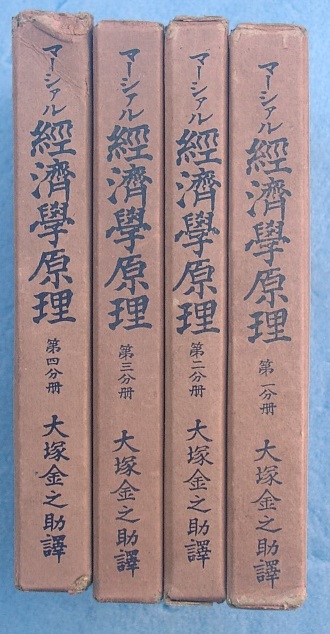 マーシァル 經濟學原理 第一分册 大塚金之助譯
マーシァル 經濟學原理 第二分册 大塚金之助譯
マーシァル 經濟學原理 第三分册 大塚金之助譯
マーシァル 經濟學原理 第四分册 大塚金之助譯